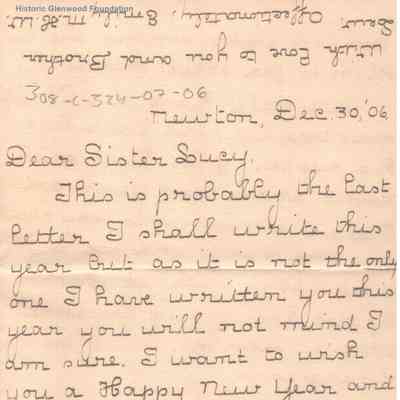 Historic Glenwood Foundation
With Love to you and Brother
Levi. Affectionately, Emily. M.H.W.
308-C-324-07-06
Newton, Dec. 30, '06
Dear Sister Lucy.
This is probably the last
letter I shall write this
year but as it is not the only
one I have written you this
year you will not mind I
am sure. I want to wish
you a Happy New Year and